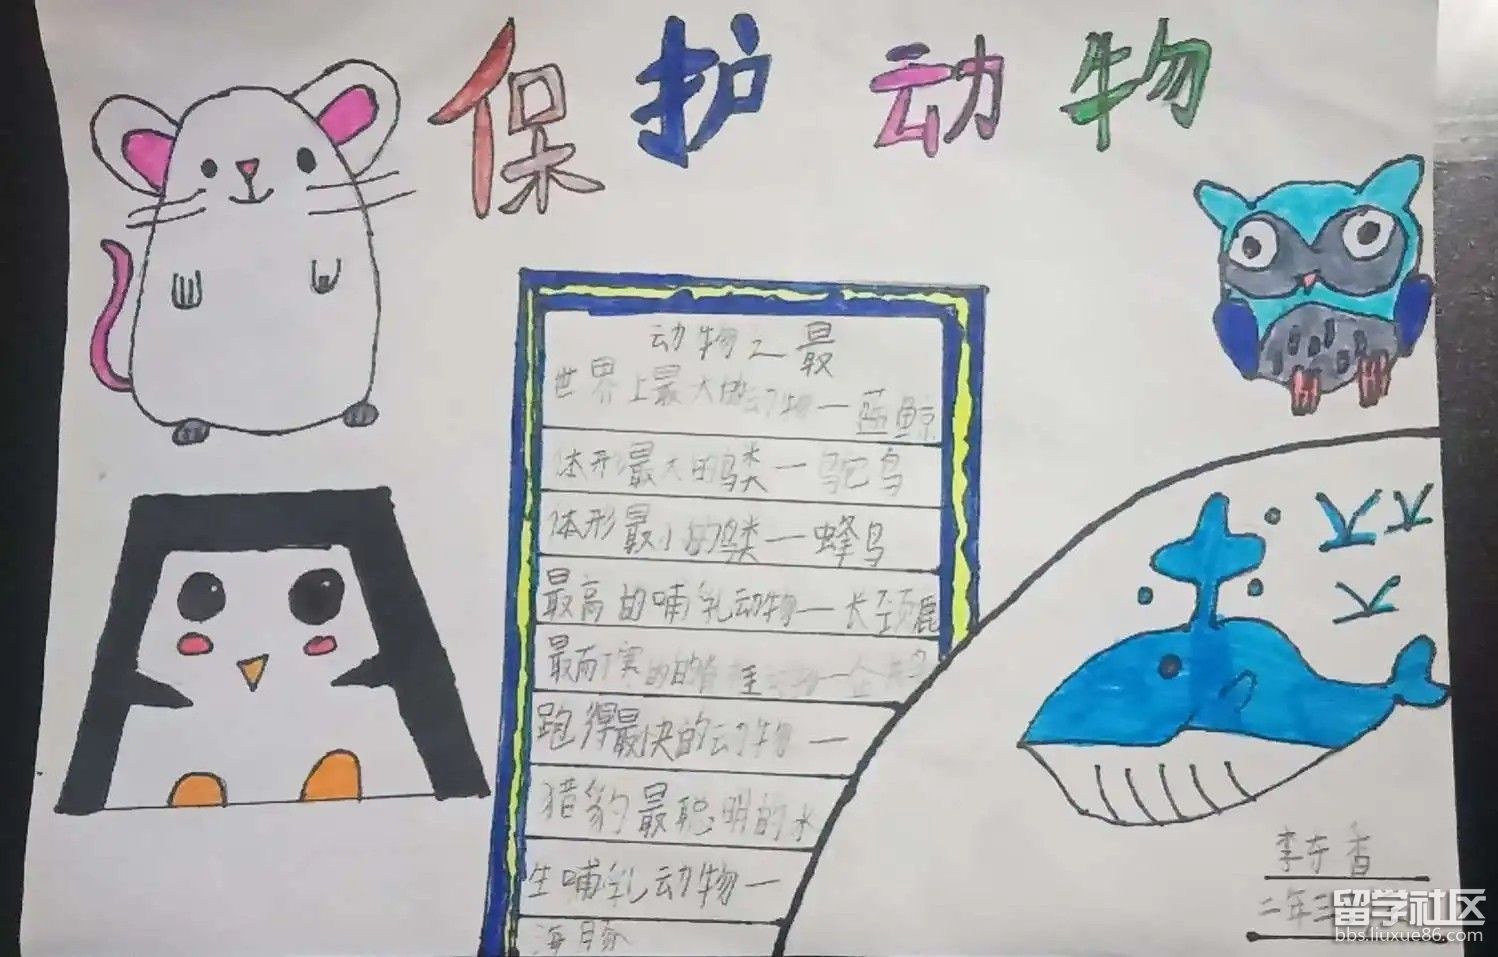 保护动物
动物之最
世界上最大的动物一蓝鲸
体形最大的鸟类一鸵鸟
体形最小的鸟类一蜂鸟
最高的哺乳动物一长颈鹿
最耐寒的
跑得最快的动物一
猎豹最聪明的水
生哺乳动物一
海豚
李
二年三
留学社区
bbs.liuxue86.com